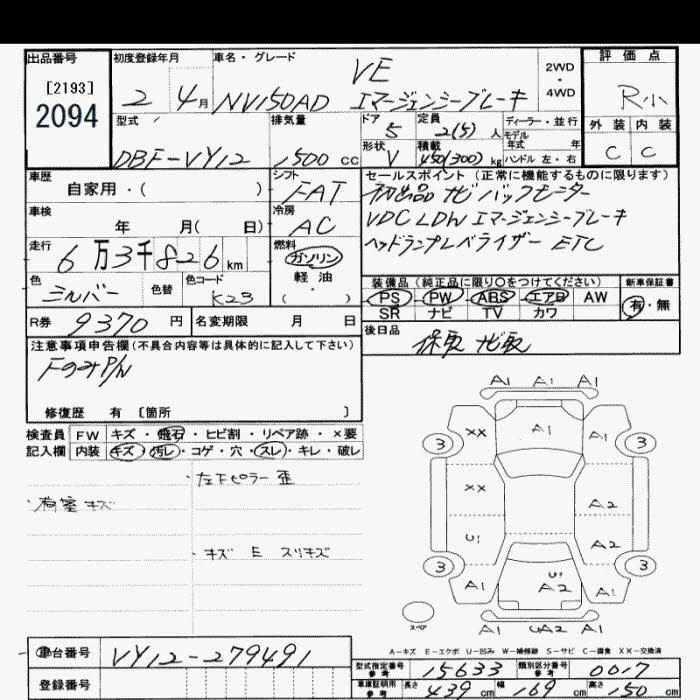 出品番号
[2193]
2094
初度登録年月
2 4月
車名・グレード
VE
NV150AD エマージェンシーブレーキ
2WD
・
4WD
評価点
R小
外装 内装
C C
型式
DBF-VY12
排気量
1500 cc
ドア
5
定員
2(5)人
形状
V
積載
450(300)kg
ディーラー・並行
モデル
年式 年
ハンドル 左・右
車歴
自家用・( )
シフト
FAT
車検
年 月( 日)
冷房
AC
走行
6万3千826km
燃料
ガソリン
軽油
( )
色
シルバー
色替
色コード
K23
R券
9370円
名変期限
月 日
セールスポイント(正常に機能するものに限ります)
初出品 ナビ バックモニター
VDC LDW エマージェンシーブレーキ
ヘッドランプレベライザー ETC
装備品(純正品に限り○をつけてください)
新車保証書
PS PW ABS エアB AW
SR ナビ TV カワ
有・無
後日品
保取 ナビ取
注意事項申告欄(不具合内容等は具体的に記入して下さい)
修復歴 有〔箇所 〕
検査員
記入欄
FW キズ・飛石・ヒビ割・リペア跡・×要
内装 キズ・汚レ・コゲ・穴・スレ・キレ・破レ
・左下ピラー歪
・荷室キズ
・キズ E スリキズ
A1 A1 A1
XX A1 A1
3 3
XX A2
U1 A2
3 3
A1 U1 A2 A1
A1 UA2 A1
スペア
A-キズ E-エクボ U-凹み W-補修跡 S-サビ C-腐食 XX-交換済
車台番号
VY12-279491
登録番号
型式指定番号
参考
15633
類別区分番号
参考
0017
車庫証明用
参考
長さ 439cm 幅 169cm 高さ 150cm